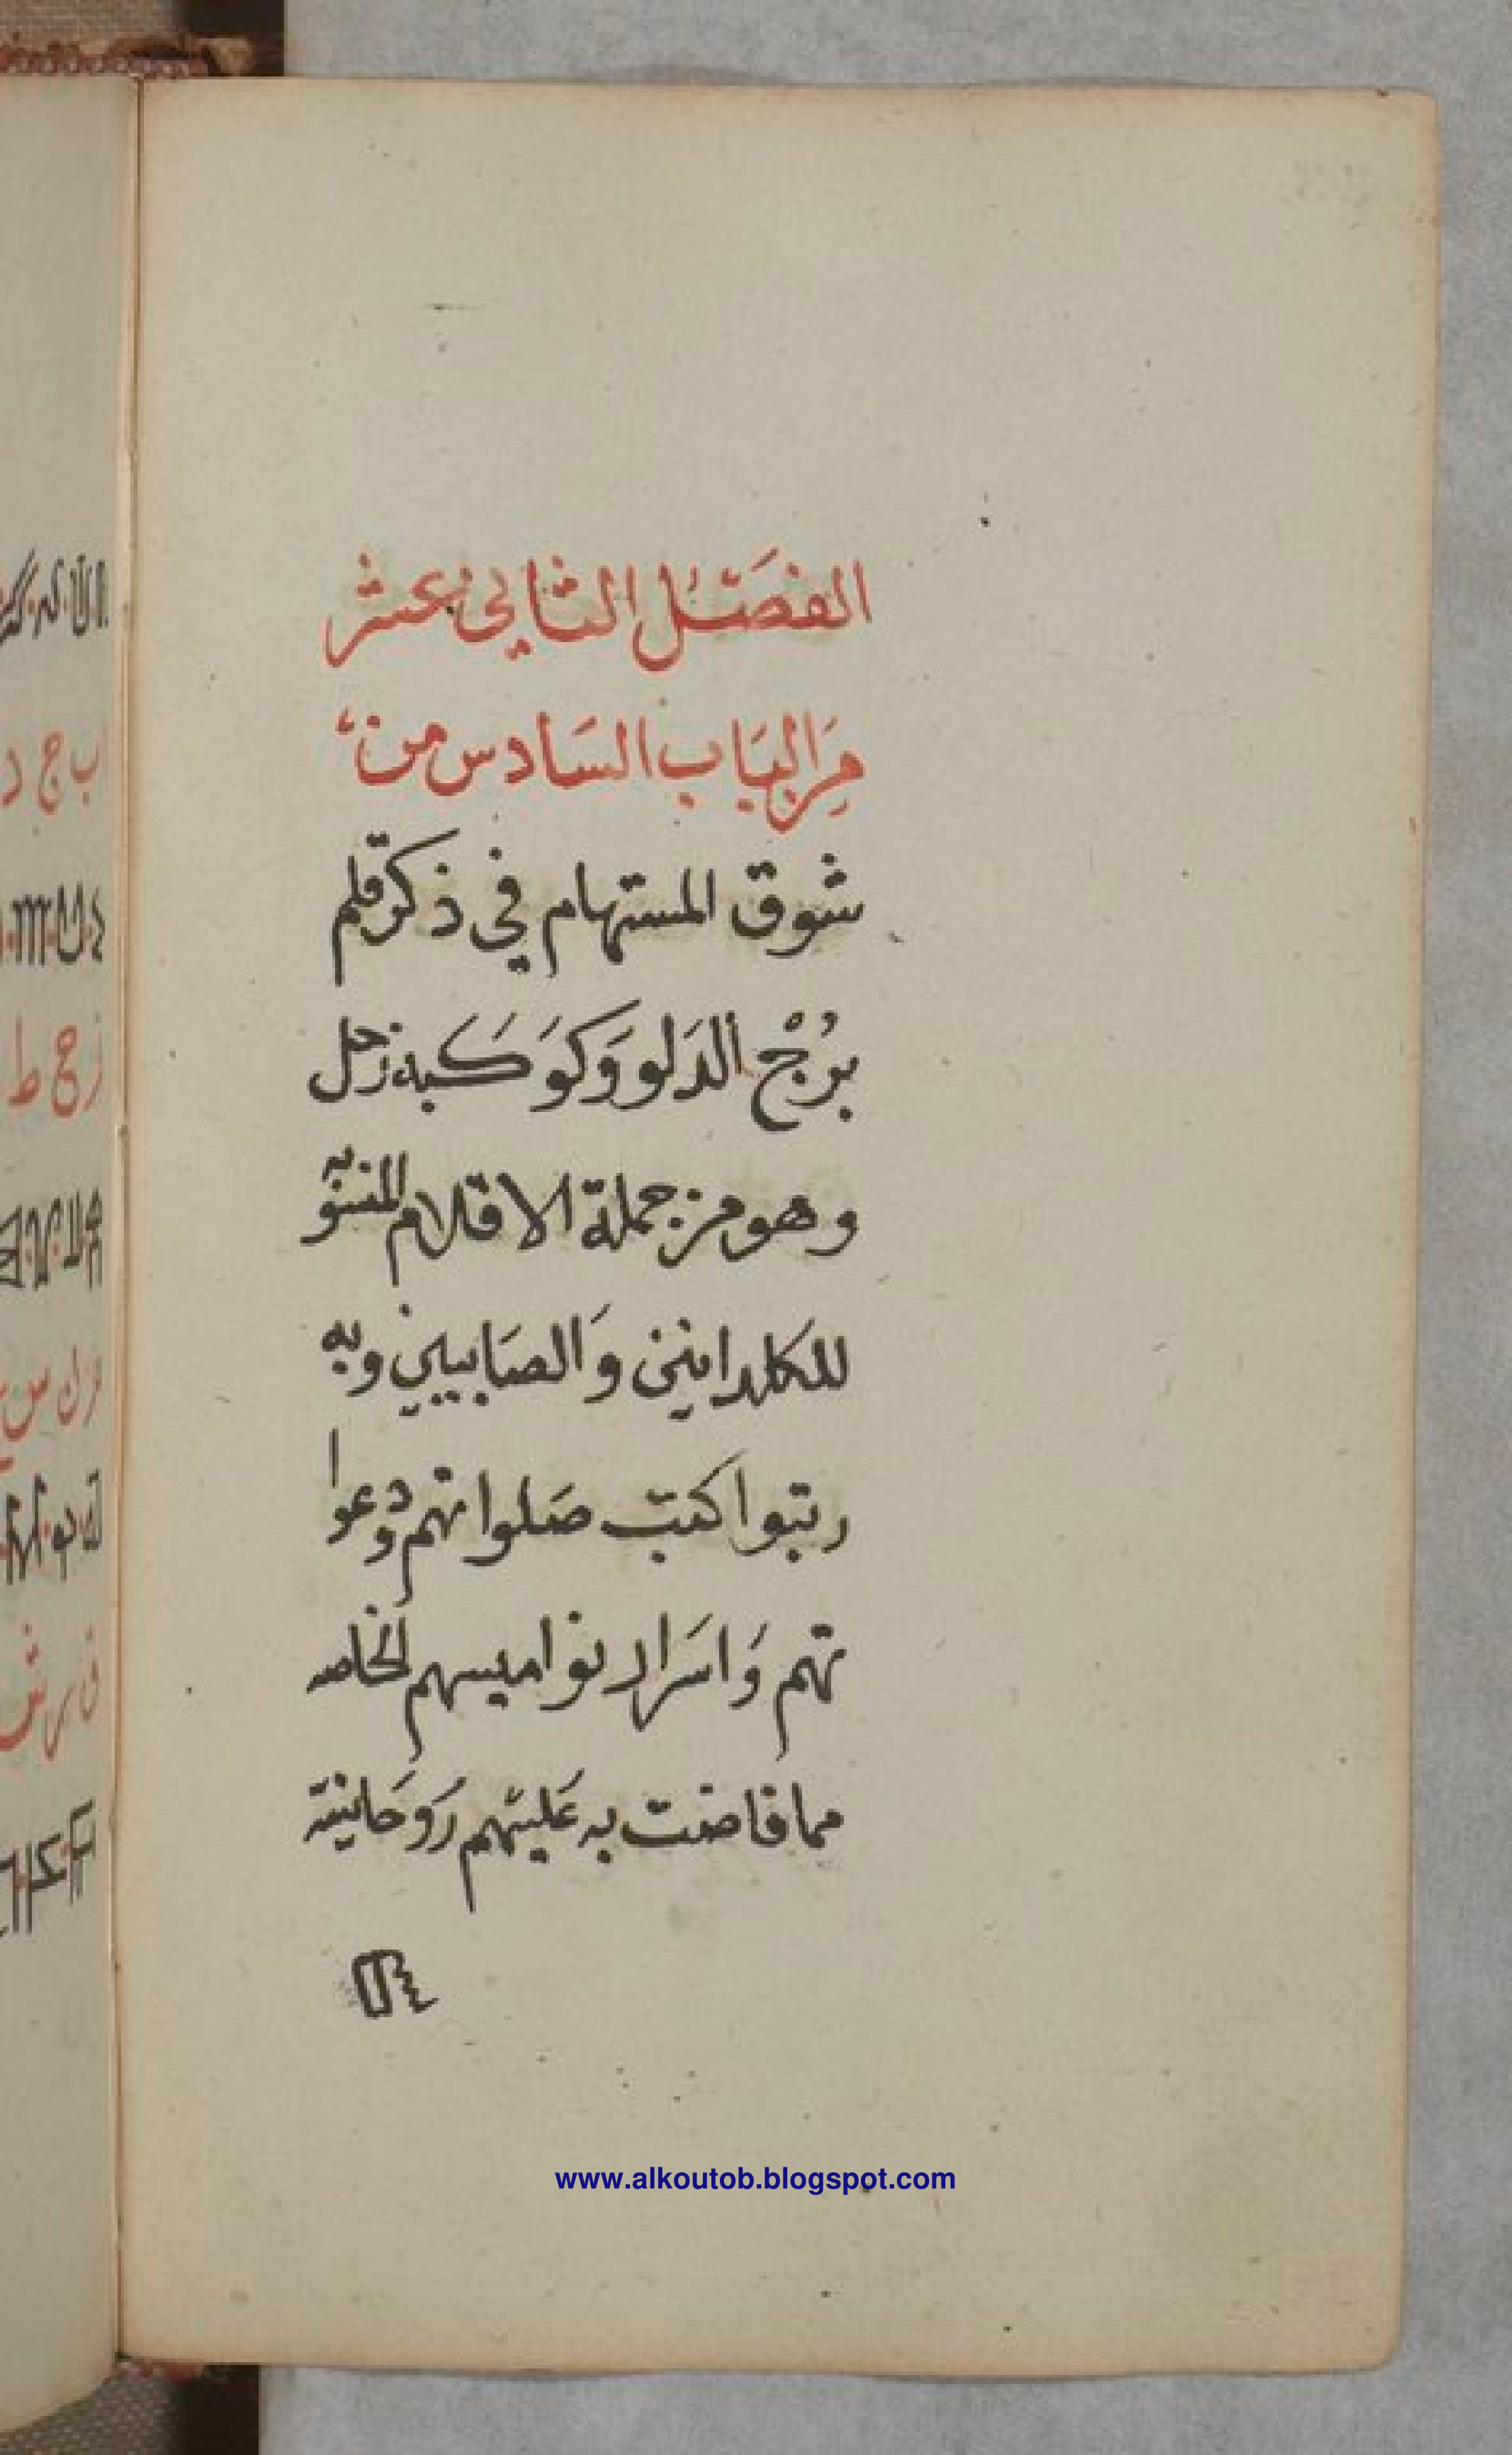 الفصل الثاني عشر
من الباب السادس من
شوق المستهام في ذكر قلم
برُج الدَلو وَكوَكَبه زحل
وهو من جملة الاقلام المنسوبه
للكلدانين وَالصَابيين وبه
رتبوا كتب صَلواتهم ودعوا
تهم وَاسَرار نواميسهم الخاصه
مما فاضت به عَليهم رَوحَانية
www.alkoutob.blogspot.com
ب ج د
ز ح ط